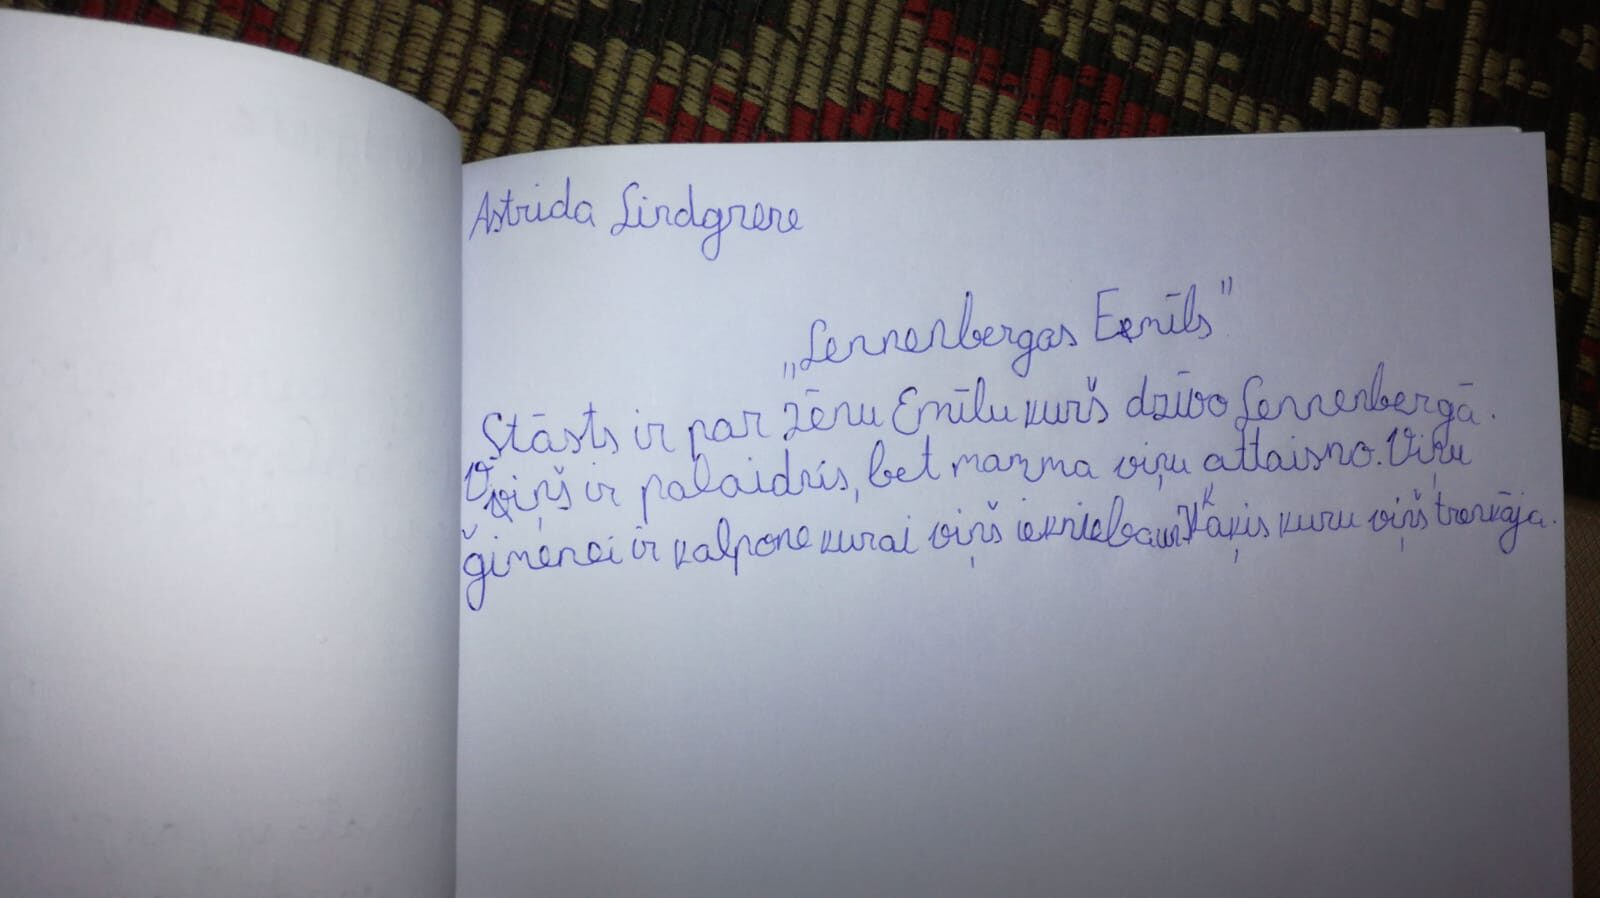 Astrida Lindgrene
„Lennenbergas Emīls"
Stāsts ir par zēnu Emīlu kurš dzīvo Lennenbergā.
Viņš ir palaidnis, bet mamma viņu attaisno. Viņu
ģimenei ir kalpone kurai viņš ieknieba un Kaķis kuru viņš trenkāja.